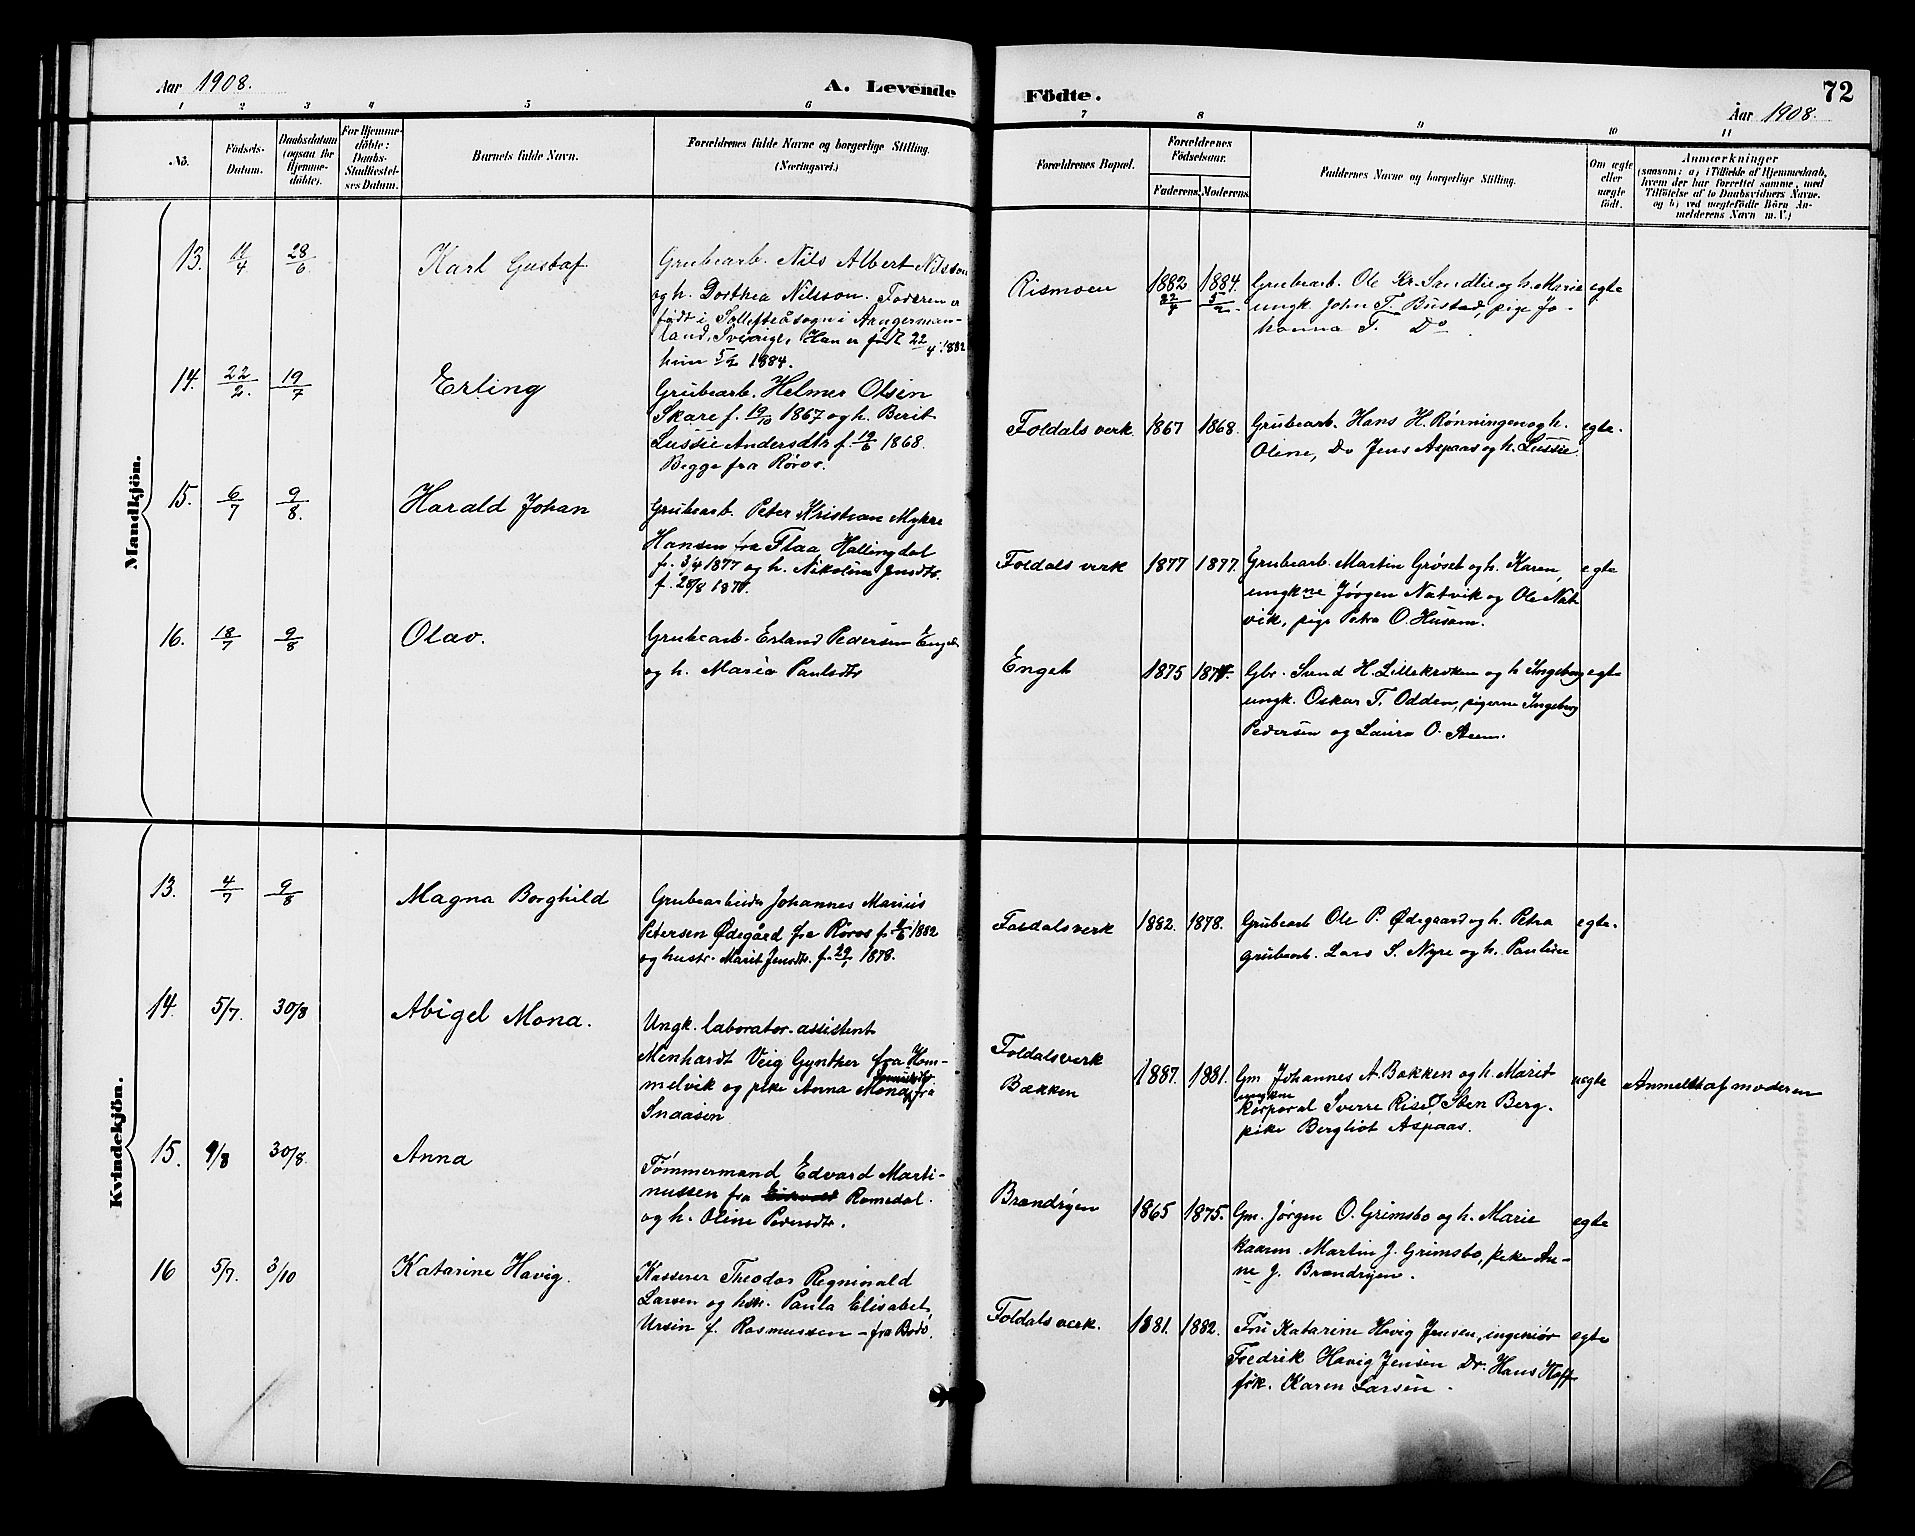 Aar 1908.
A. Levende
Födte.
72
Aar 1908.
1 2 3 4 5 6 7 8 9 10 11
No.
Födsels-
Datum.
Daabsdatum
(ogsaa for
Hjemme-
döbte).
For Hjemme-
döbte:
Daabs-
Stadfæstel-
ses Datum.
Barnets fulde Navn.
Forældrenes fulde Navne og borgerlige Stilling.
(Næringsvei.)
Forældrenes Bopæl.
Forældrenes
Födselsaar.
Faderens. Moderens.
Faddernes Navne og borgerlige Stilling.
Om ægte
eller
uægte
födt.
Anmærkninger
(saasom: a) i Tilfælde af Hjemmedaab,
hvem der har forrettet samme, med
Tilföielse af to Daabsvidners Navne,
og b) ved uægtefödte Börn An-
melderens Navn m. V.)
Mandkjön.
13. 11/4 28/6. Karl Gustaf.
Grubearb. Nils Albert Nilsson
og h. Dorthea Nilsson. Faderen er
født i Sollefteå sogn i Aangerman-
land, Sverige, Han er født 22/4 1882
hun 5/2 1884.
Rismoen 1882 22/4 1884. 5/2.
Grubearb. Ole Kr. Sandlie og h. Marie
ungk. John T. Bustad, pige Jo-
hanna T. Do
egte
14. 22/2. 19/7 Erling
Grubearb. Helmer Olsen
Skare f. 19/10 1867 og h. Berit
Lussie Andersdtr f. 19/6 1868.
Begge fra Røros.
Foldals verk. 1867 1868.
Grubearb. Hans H. Rønningen og h.
Oline, Do Jens Aspaas og h. Lussie
egte.
15. 6/7 9/8. Harald Johan
Grubearb. Peter Kristian Mykre
Hansen fra Flaa, Hallingdal
f. 3/4 1877 og h. Nikoline Jensdtr.
f. 28/8 1877.
Foldals verk 1877 1877.
Grubearb. Martin Grøset og h. Karen,
ungkne Jørgen Natvik og Ole Nat
vik, pige Petra O. Husom.
egte
16. 18/7 9/8 Olav.
Grubearb. Erland Pedersen Enget
og h. Maria Paulsdtr
Enget 1875
Gbr. Svend H. Lillekroken og h Ingeborg
ungk. Oskar T. Odden, pigerne Ingeborg
Pedersen og Laura O. Steen.
egte
Kvindekjön.
13. 4/7 9/8 Magna Borghild
Grubearbeider Johannes Marius
Petersen Ødegård fra Røros f. 1882
og hustr. Marit Jensdtr. f. 29/1 1878.
Foldalsverk 1882. 1878.
Grubearb Ole P. Ødegaard og h. Petra
grubearb. Lars S. Nyre og h. Pauline
egte.
14. 5/7. 30/8 Abigel Mona.
Ungk. laborator. assistent
Menhardt Veig Gynther fra Hom-
melvik og pike Anna Mona fra
Snaasen
Foldalsverk
Bækken
1887. 1881.
Gm Johannes A. Bakken og h. Marit
ungkne
korporal Sverre Rise, Sten Berg.
pike Bergliot Aspaas.
uegte
Anmeldt af moderen
15. 9/8 30/8. Anna
Tømmermand Edvard Marti-
nussen fra Romedal.
og h. Oline Pedersdtr.
Brændryen 1865 1875.
Gm. Jørgen O. Grimsbo og h. Marie
kaaren. Martin J. Grimsbo, pike An-
ne J. Brændryen.
egte
16 5/7. 3/10 Katarine Havig.
Kasserer Theodor Reginald
Larsen og hstr. Paula Elisabet,
Ursin f. Rasmussen – fra Bodø.
Foldals verk. 1881. 1882.
Fru Katarine Havig Jensen, ingeniør
Fredrik Havig Jensen Dr. Hans Hoff
frk. Karen Larsen.
egte